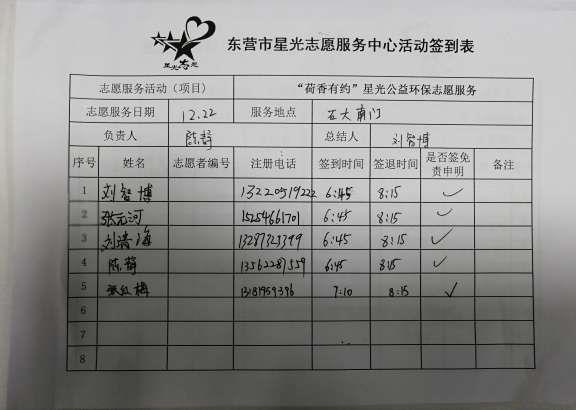 星光志愿
东营市星光志愿服务中心活动签到表
志愿服务活动（项目） “荷香有约”星光公益环保志愿服务
志愿服务日期 12.22 服务地点 石大南门
负责人 陈静 总结人 刘智博
序号 姓名 志愿者编号 注册电话 签到时间 签退时间 是否签免责申明 备注
1 刘智博 13220519222 6:45 8:15 ✓
2 张元河 15254661701 6:45 8:15 ✓
3 刘清海 13287323399 6:45 8:15 ✓
4 陈静 13562287559 6:45 8:15 ✓
5 张红梅 13181959396 7:10 8:15 ✓
6
7
8